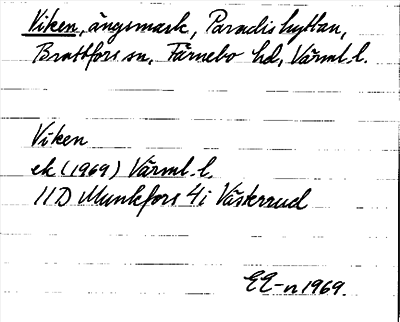 Viken, ängsmark, Paradishyttan,
Brattfors sn, Färnebo hd, Värml. l.
Viken
ek (1969) Värml. l.
11D Munkfors 4i Västerrud
EE-n 1969.